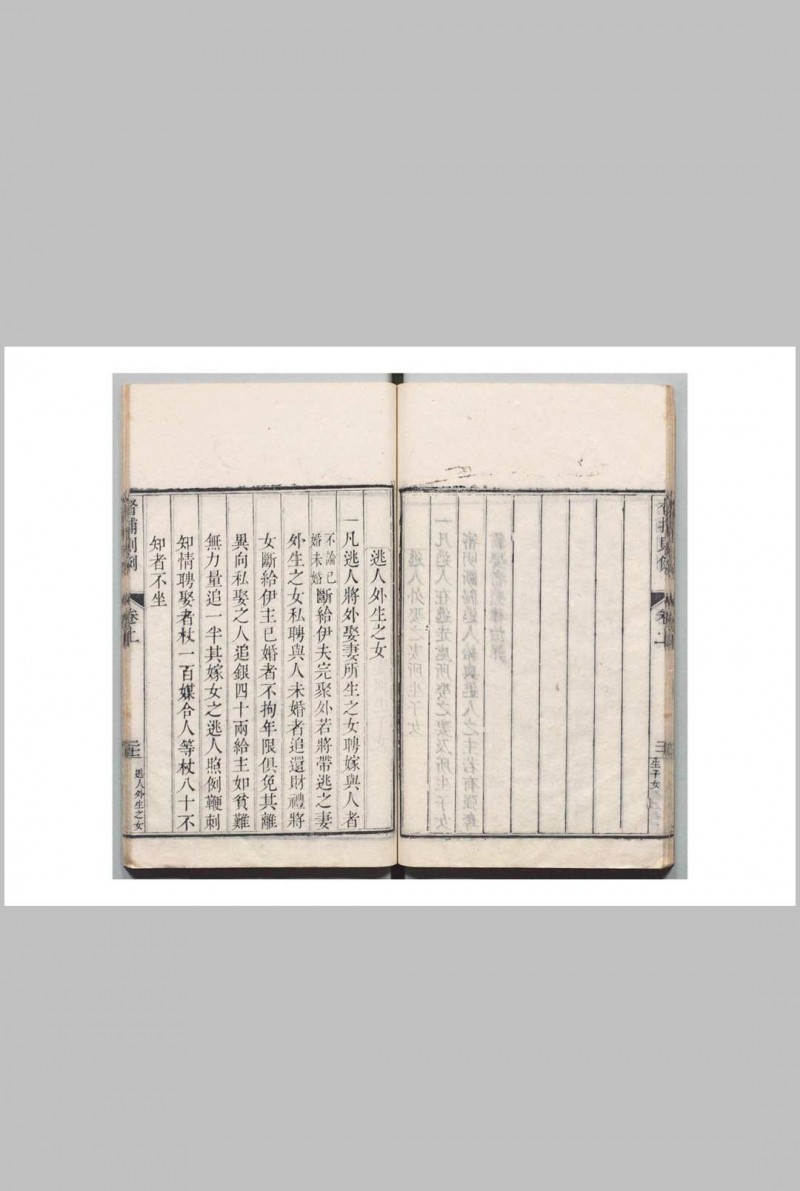 逃人外生之女
一凡逃人將外娶妻所生之女聘嫁與人者
不論已婚未婚斷給伊夫完聚外若將帶逃之妻
外生之女私聘與人未婚者追還財禮將
女斷給伊主已婚者不拘年限俱免其離
異向私娶之人追銀四十兩給主如貧難
無力量追一半其嫁女之逃人照例鞭刺
知情聘娶者杖一百媒合人等杖八十不
知者不坐
督捕則例
卷上
逃人外生之女
生子女